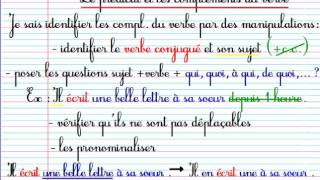 Le prédicat et les compléments du verbe
Je sais identifier les compl. du verbe par des manipulations:
- identifier le verbe conjugué et son sujet (+c.c.)
- poser les questions sujet + verbe + qui, quoi, à qui, de quoi,... ?
Ex : Il écrit une belle lettre à sa soeur depuis 1 heure.
- vérifier qu'ils ne sont pas déplaçables
- les pronominaliser
Il écrit une belle lettre à sa soeur. → Il en écrit une à sa soeur.